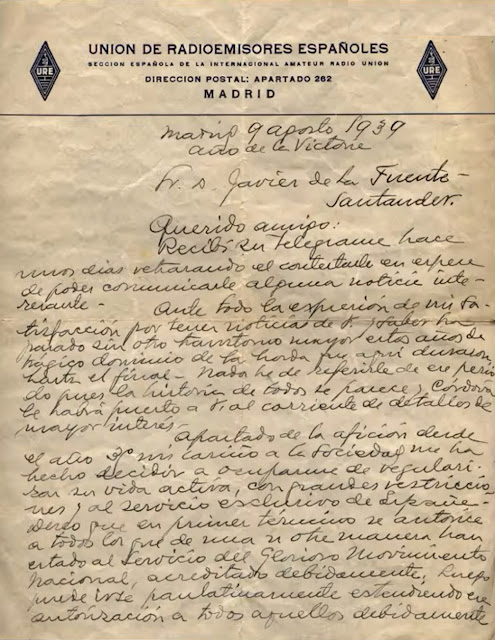 UNION DE RADIOEMISORES ESPAÑOLES
SECCION ESPAÑOLA DE LA INTERNACIONAL AMATEUR RADIO UNION
DIRECCION POSTAL: APARTADO 262
MADRID
URE
URE
Madrid 9 agosto 1939
Año de la Victoria
Sr. D. Javier de la Fuente-
Santander.
Querido amigo:
Recibí su telegrama hace
unos días retrasando el contestarle en espera
de poder comunicarle alguna noticia inte-
resante-
Ante todo la expresión de mi sa-
tisfacción por tener noticias de V. y saber ha
pasado sin otro trastorno mayor estos años de
trágico dominio de la horda que aquí duraron
hasta el final- Nada he de referirle de ese perio
do pues la historia de todos se parece y Córdova
le habrá puesto a V. al corriente de detalles de
mayor interés-
Apartado de la afición desde
el año mi cariño a la Sociedad me ha
hecho decidir a ocuparme de regulari-
zar su vida activa, con grandes restriccio
nes y al servicio exclusivo de España-
Deseo que en primer término se autorice
a todos los que de una u otra manera han
estado al Servicio del Glorioso Movimiento
Nacional, acreditado debidamente, luego
puede irse paulatinamente extendiendo esa
autorización a todos aquellos debidamente